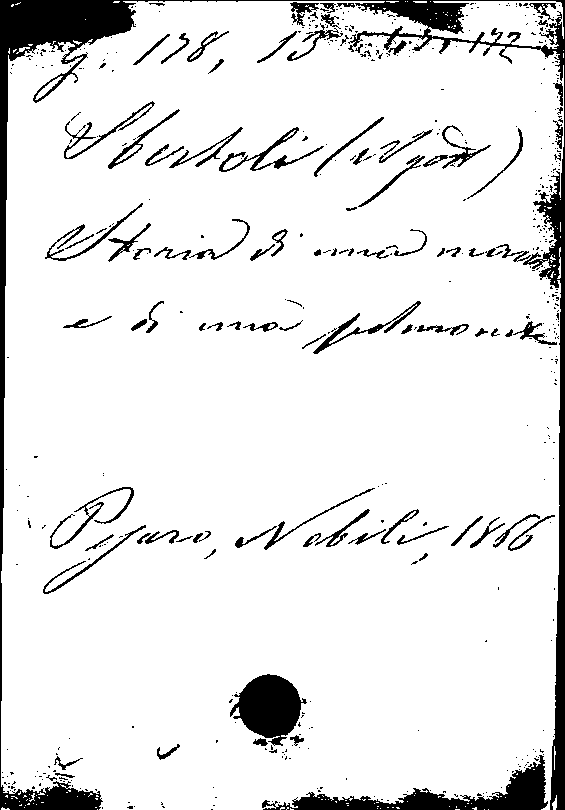 g. 178, 13
Sbertoli (Ugo)
Storia di una
e di una polmonite
Pesaro, Nobili, 1866